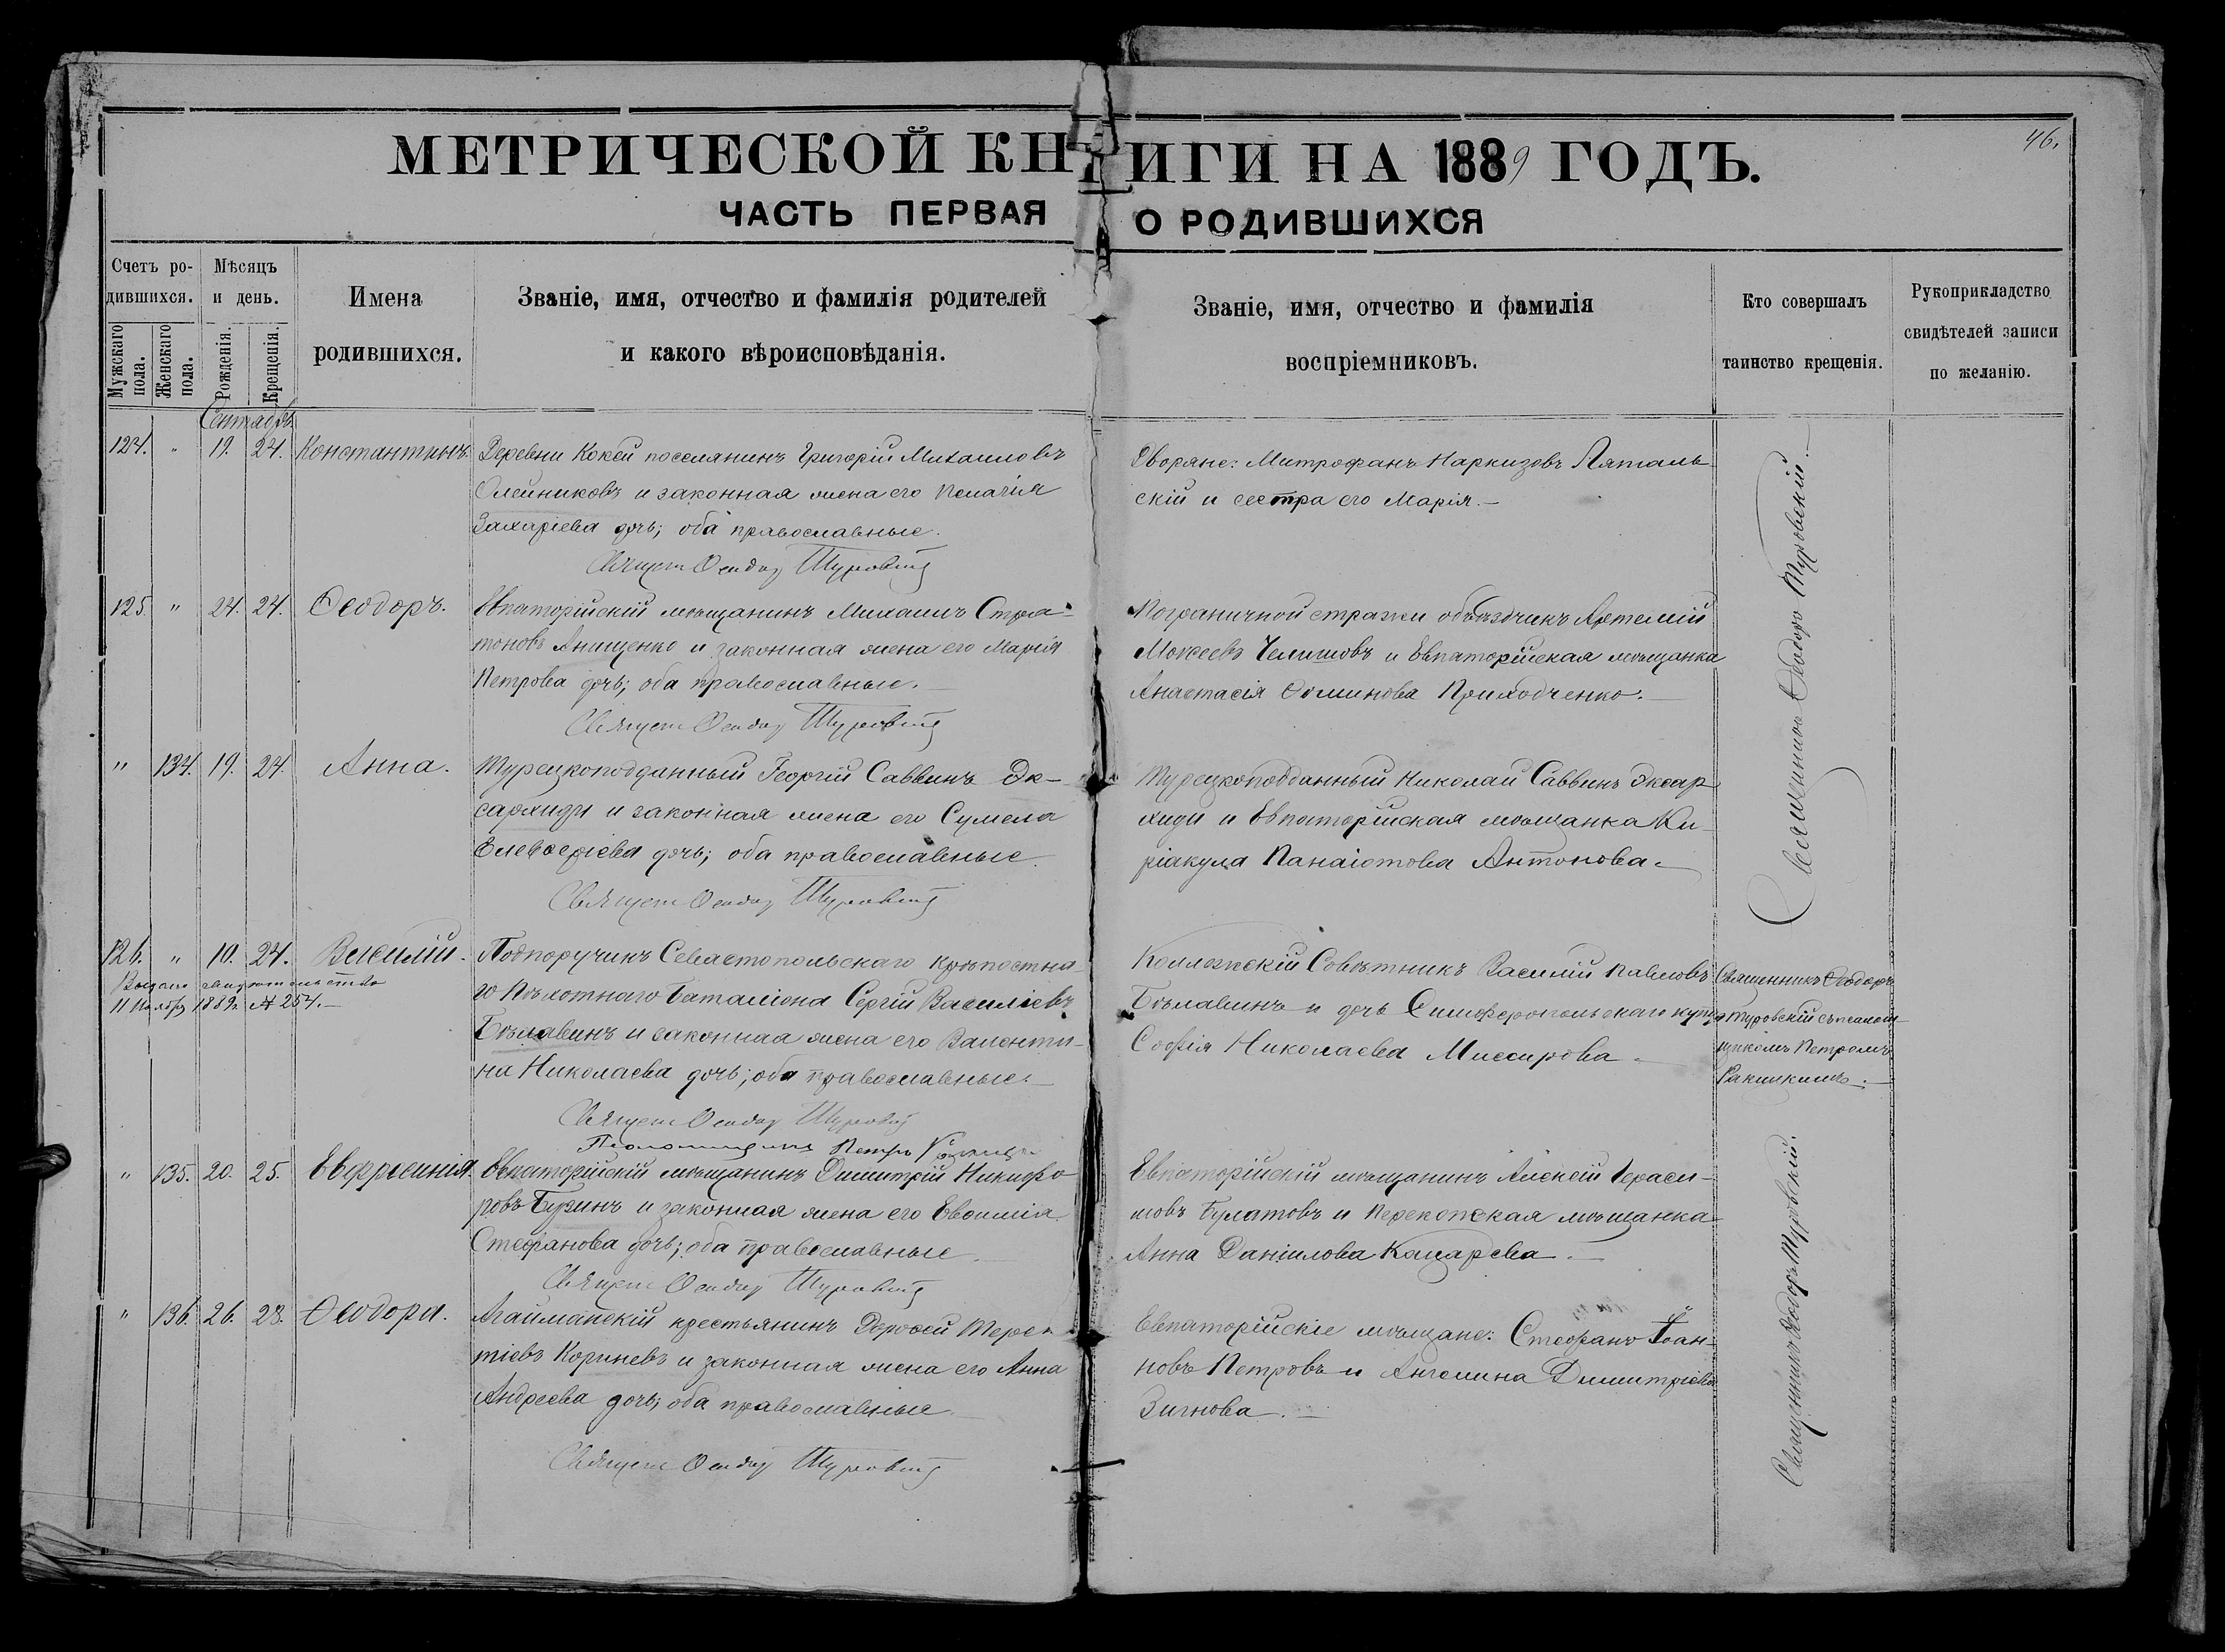 46.
МЕТРИЧЕСКОЙ КНИГИ НА 1889 ГОДЪ.
ЧАСТЬ ПЕРВАЯ О РОДИВШИХСЯ
Счетъ ро-
дившихся.
Мужскаго пола.
Женскаго пола.
Мѣсяцъ
и день.
Рожденія.
Крещенія.
Имена
родившихся.
Званіе, имя, отчество и фамилія родителей
и какого вѣроисповѣданія.
Званіе, имя, отчество и фамилія
воспріемниковъ.
Кто совершалъ
таинство крещенія.
Рукоприкладство
свидѣтелей записи
по желанію.
Сентябрь
124. " 19. 24. Константинъ.
Деревни Кокей поселянинъ Григорій Михаиловъ
Олейниковъ и законная жена его Пелагія
Захаріева дочь; оба православные.
Священ Феодор Туровский
Дворяне: Митрофанъ Наркизовъ Пяталь-
скій и сестра его Марія.—
125 " 24. 24. Ѳеодоръ.
Евпаторійскій мѣщанинъ Михаилъ Стра-
тоновъ Анищенко и законная жена его Марія
Петрова дочь; оба православные.
Священ Феодор Туровский
Пограничной стражи объѣздчикъ Артемій
Моисеевъ Челишовъ и Евпаторійская мѣщанка
Анастасія Ѳоминова Приходченко.
" 134. 19. 24. Анна.
Турецкоподданный Георгій Саввинъ Эк-
сархиди и законная жена его Сумела
Елевѳеріева дочь; оба православные.
Священ Феодор Туровский
Турецкоподданный Николай Саввинъ Эксар
хиди и Евпаторійская мѣщанка Ки-
ріакула Панаіотова Антонова.
Священникъ Ѳеодоръ Туровскій.
126. " 10. 24. Василій.
Выдано свидѣтельство
11 Ноября 1889 г. № 254.—
Подпоручикъ Севастопольскаго крѣпостна-
го Пѣхотнаго Баталіона Сергій Василіевъ
Бѣлавинъ и законная жена его Валенти-
на Николаева дочь; оба православные.
Священ Феодор Туровский
Псаломщикъ Петръ
Коллежскій Совѣтникъ Василій Павловъ
Бѣлавинъ и дочь Симферопольскаго купца
Софія Николаева Миссирова.
Священникъ Ѳеодоръ
Туровскій съ псалом-
щикомъ Петромъ
" 135. 20. 25. Евфросинія.
Евпаторійскій мѣщанинъ Димитрій Никифо
ровъ Бузинъ и законная жена его Евѳимія
Стефанова дочь; оба православные.
Священ Феодор Туровский
Евпаторійскій мѣщанинъ Алексій Гераси-
мовъ Булатовъ и Перекопская мѣщанка
Анна Даніилова Кацарева.
" 136. 26. 28. Ѳеодора.
Агайманскій крестьянинъ Дороѳей Терен
тіевъ Корневъ и законная жена его Анна
Андреева дочь; оба православные.
Священ Феодор Туровский
Евпаторійскіе мѣщане: Стефанъ Іоан-
новъ Петровъ и Ангелина Димитріева
Зигнова.—
Священникъ Ѳеодоръ Туровскій.